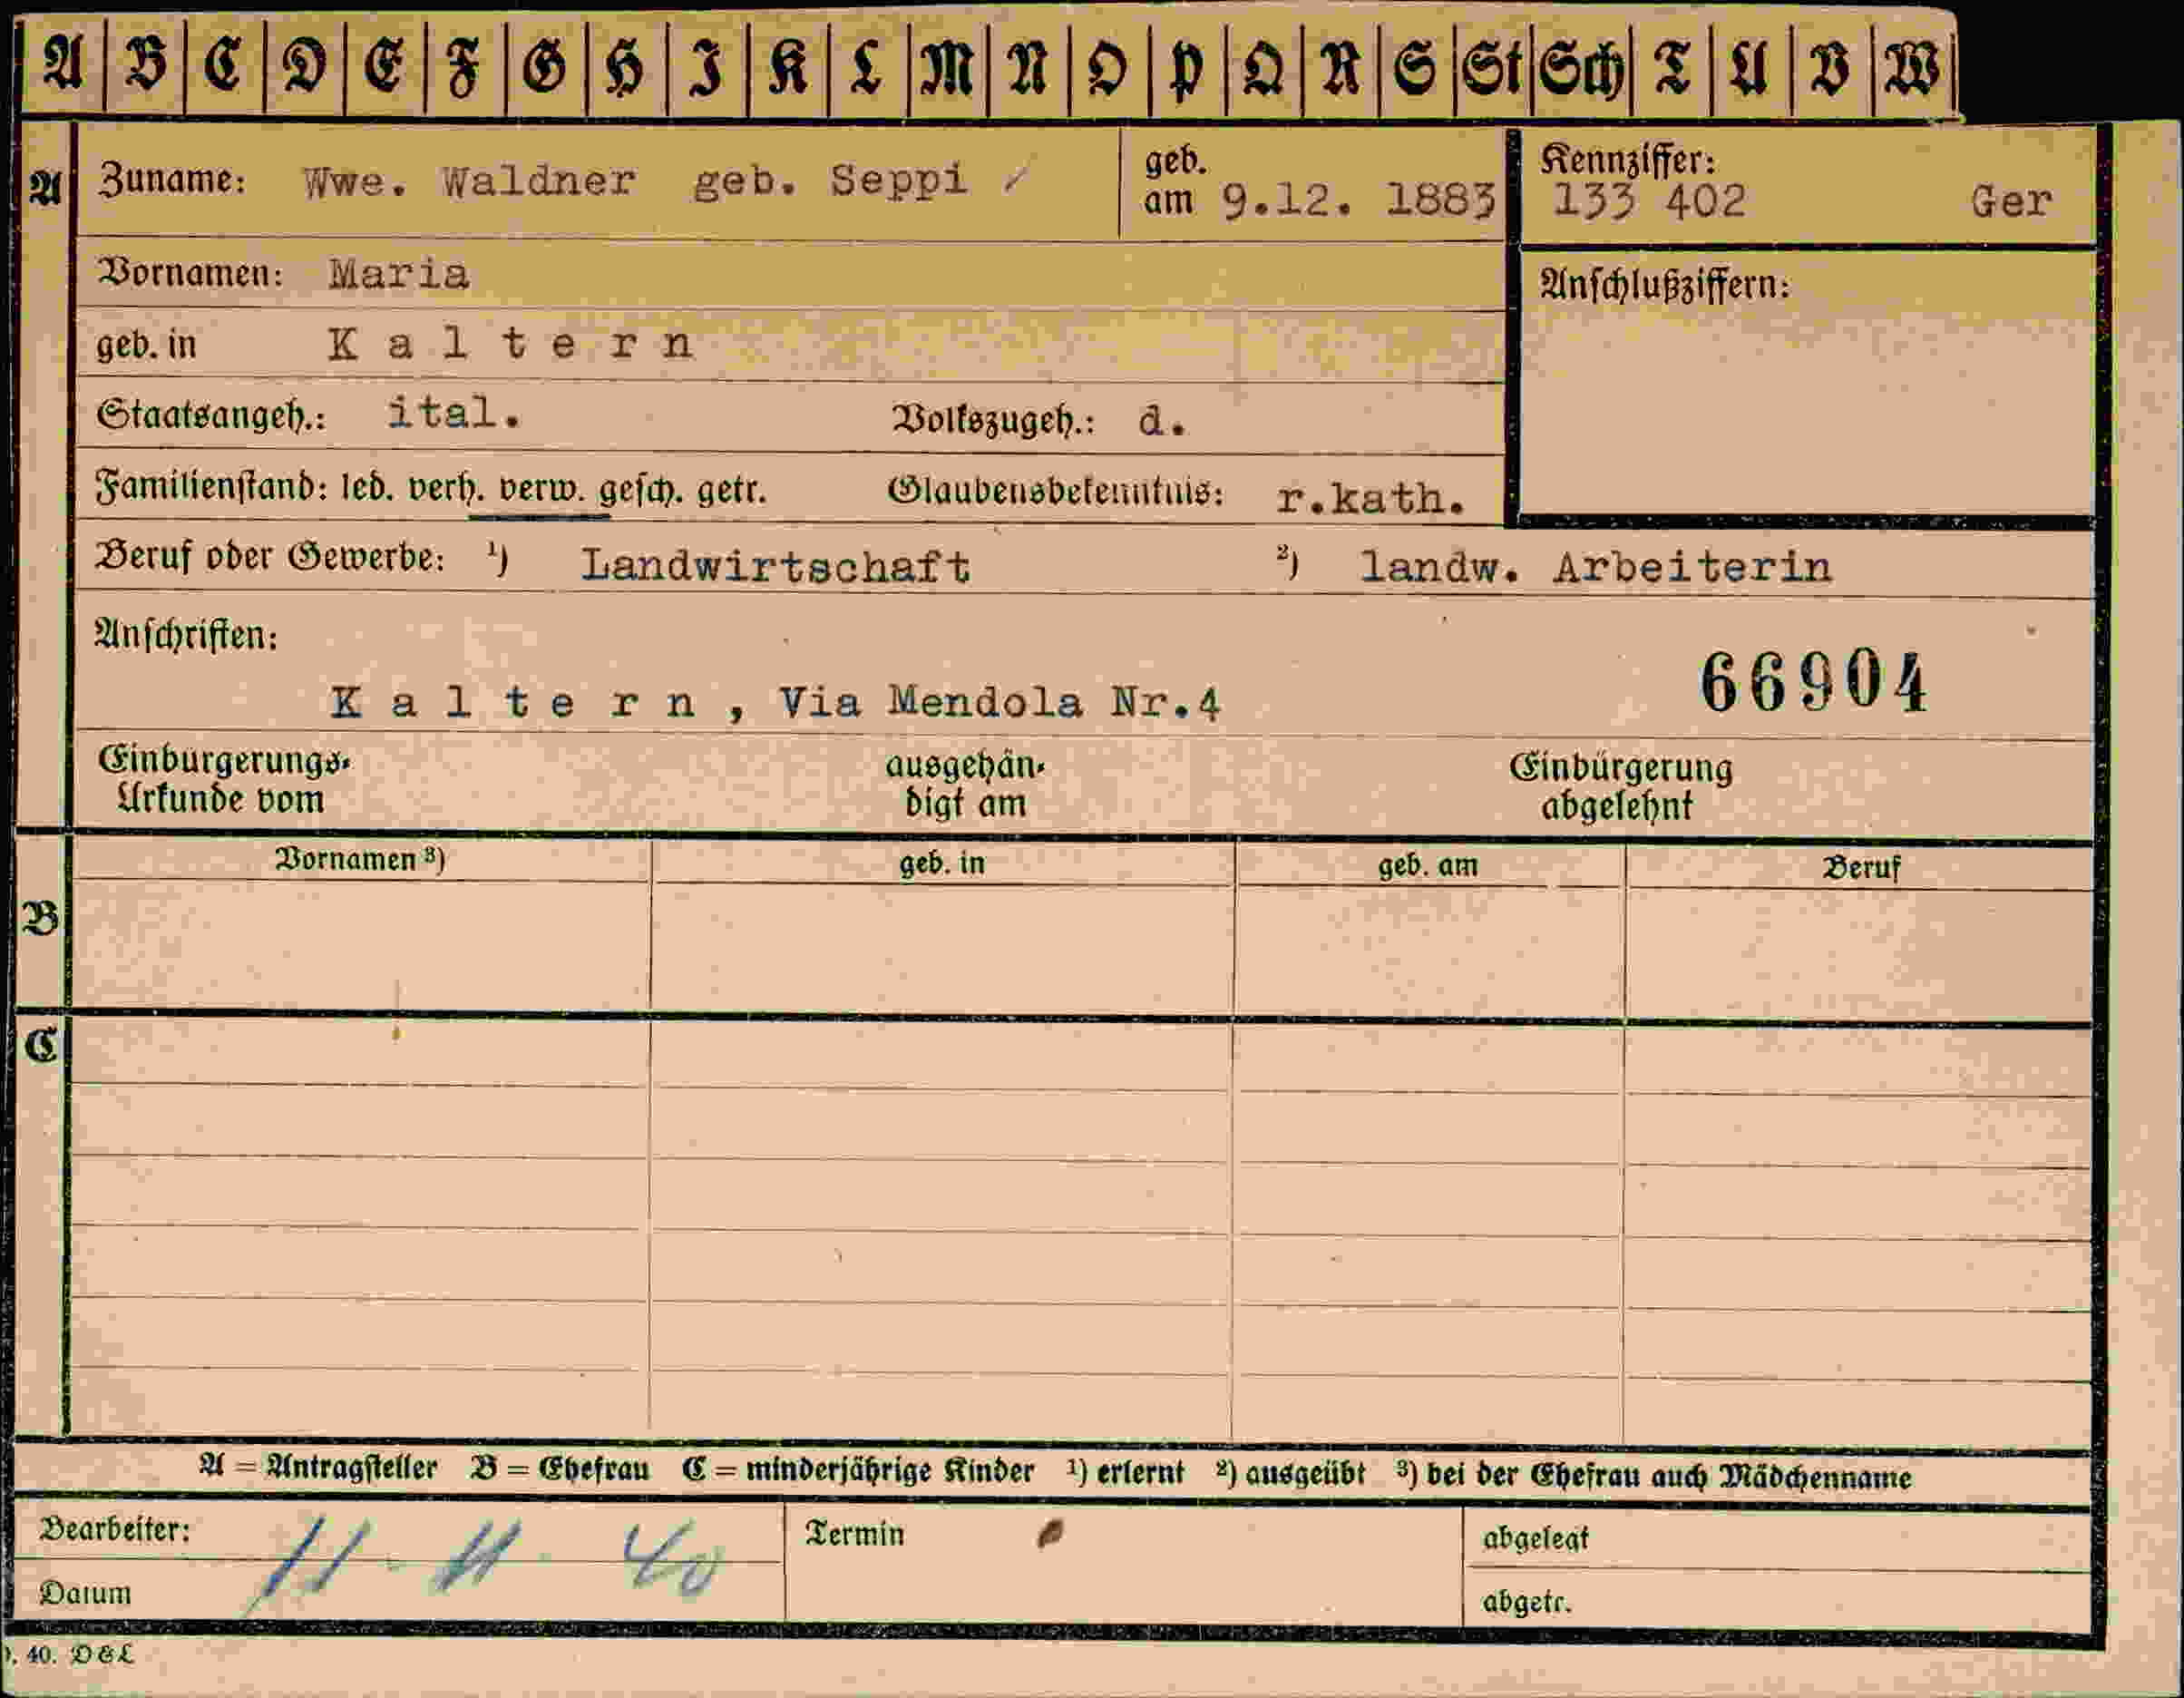 A B C D E F G H I K L M N O P Q R S St Sch T U V W
A Zuname: Wwe. Waldner geb. Seppi
geb. am 9.12. 1883
Kennziffer: 133 402 Ger
Vornamen: Maria
Anschlußziffern:
geb. in K a l t e r n
Staatsangeh.: ital. Volkszugeh.: d.
Familienstand: led. verh. verw. gesch. getr. Glaubensbekenntnis: r.kath.
Beruf oder Gewerbe: ¹) Landwirtschaft ²) landw. Arbeiterin
Anschriften:
66904
K a l t e r n , Via Mendola Nr.4
Einbürgerungs- ausgehän- Einbürgerung
Urkunde vom digt am abgelehnt
Vornamen ³) geb. in geb. am Beruf
B
C
A = Antragsteller B = Ehefrau C = minderjährige Kinder ¹) erlernt ²) ausgeübt ³) bei der Ehefrau auch Mädchenname
Bearbeiter: 11 - 11 - 40 Termin abgelegt
Datum abgetr.
. 40. D & L